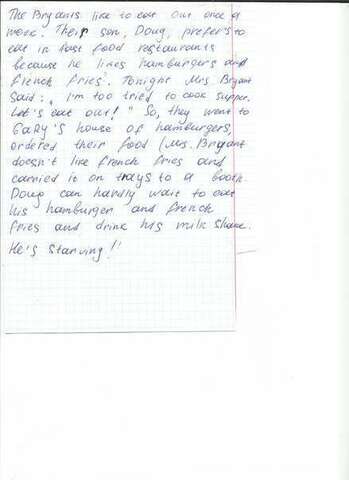 The Bryants like to eat out once a
week. Their son, Doug, prefers to
eat in fast food restaurants
because he likes hamburgers and
french fries. Tonight Mrs Bryant
said: „I'm too tried to cook supper.
Let's eat out!" So, they went to
GaRy's house of hamburgers,
ordered their food (Mrs. Bryant
doesn't like french fries and
carried it on trays to a booth.
Doug can hardly wait to eat
his hamburger and french
fries and drink his milk shake.
He's starving!!